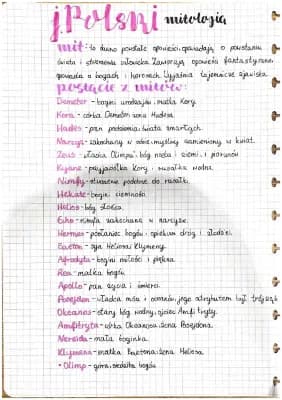 j.Polski mitologia
mit: to dawno powstałe opowieści, opowiadają o powstaniu
świata i stworzeniu człowieka. Zawierają opowieści fantastyczne,
opowieści o bogach i herosach. Wyjaśnia tajemnicze zjawiska.
postacie z mitów:
Demeter - bogini urodzajów i matka Kory.
Kora - córka Demeter, żona Hadesa.
Hades - pan podziemia i świata zmarłych.
Narcyz - zakochany w sobie, myśliwy zamieniony w kwiat.
Zeus - władca Olimpu, bóg nieba i ziemi, i piorunów
Kyane - przyjaciółka Kory, rusałka wodna.
Nimfy - stworzenie podobne do rusałki.
Hekate - bogini ciemności.
Helios - bóg słońca.
Echo - nimfa zakochana w narcyzie.
Hermes - posłaniec bogów, opiekun dróg i złodziei.
Faeton - syn Heliosa i Klymeny.
Afrodyta - bogini miłości i piękna.
Rea - matka bogów.
Apollo - pan życia i śmierci.
Posejdon - władca mórz i oceanów, jego atrybutem był trójząb
Okeanos - stary bóg wodny, ojciec Amfitryty.
Amfitryta - córka Okeanosa, żona Posejdona.
Nereida - mała boginka.
Klymena - matka Faetona, żona Heliosa.
• Olimp - góra, siedziba bogów